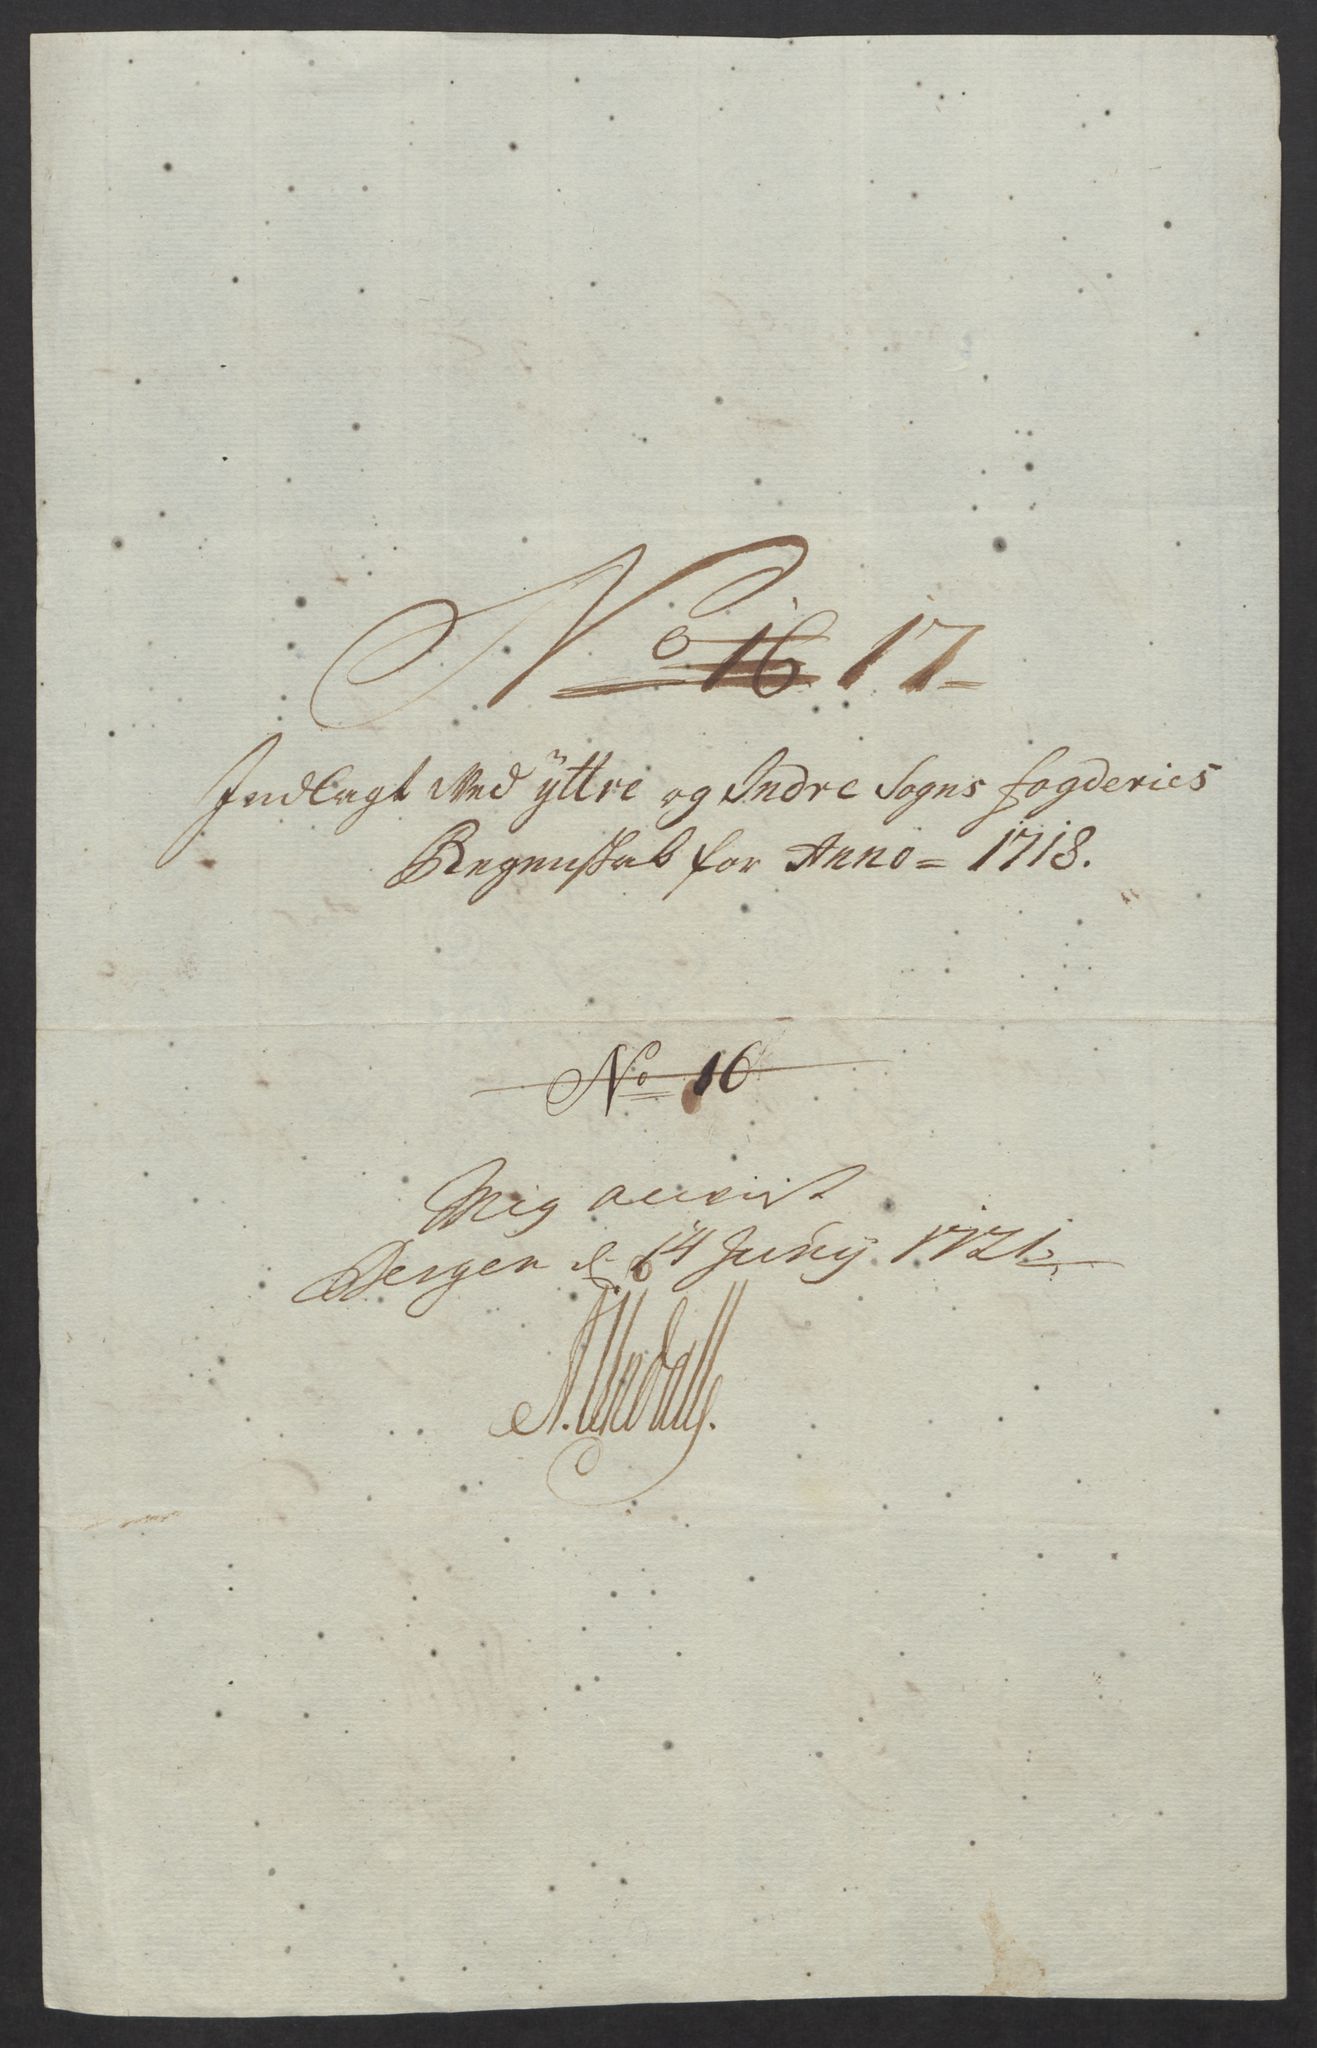 No 16 17
Indlagt Med ÿttre og Indre Sogns fogderies
Regenskab for Anno = 1718.
No 16
Mig anvist
Bergen d 14 Junÿ 1721
A. Undall.